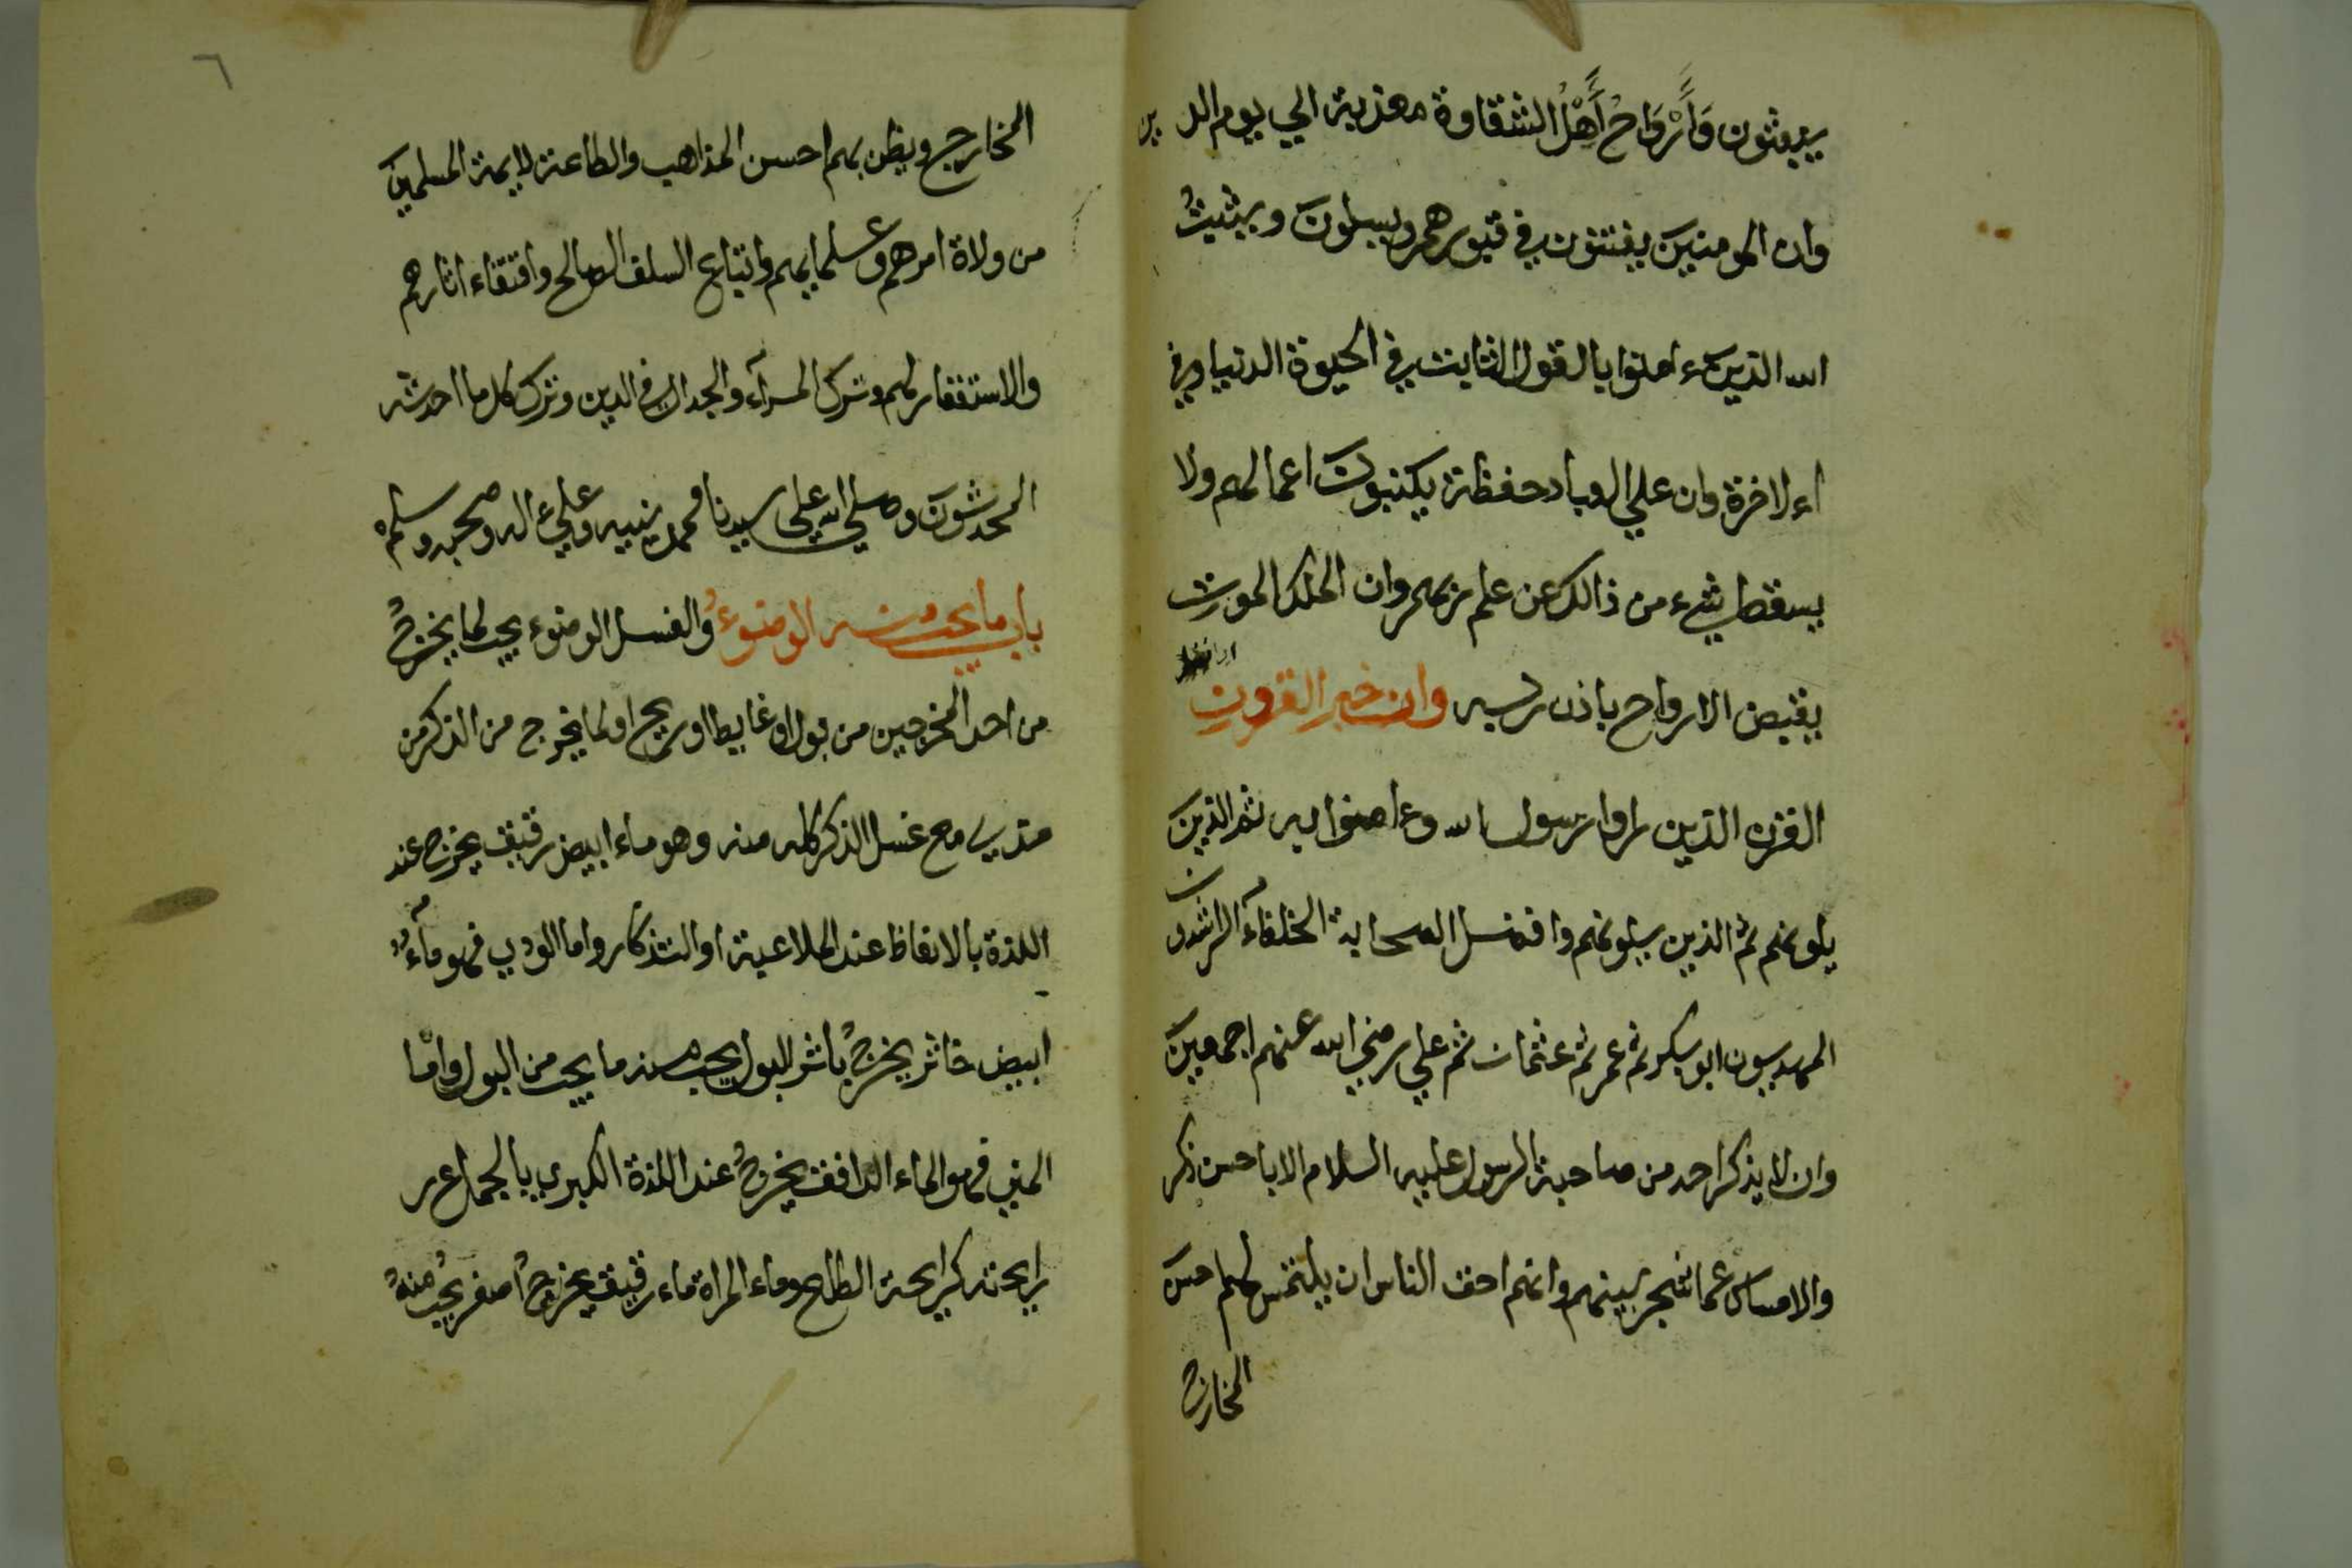 يبعثون وَأَرْوَاحُ أَهْلُ الشقاوة معذبة الي يوم الدين
وان المومنينَ يفتنون في قبورهم ويسيلونَ ويثبتُ
الله الذين ءامنوا بالقول الثابت في الحيوة الدنيا وفي
اءلاخرة وان علي العباد حفظة يكتبونَ اعمالهم ولا
يسقط شيء من ذالك عن علم ربهم وان الملك الموت
يقبض الارواح باذن ربه وان خير القرون
القرن الذين راوا رسول الله وءامنوا به ثم الذينَ
يلونهم ثم الذين يلونهم وافضل الصحابة الخلفآء الراشدون
المهديون ابو بكر ثم عمر ثم عثمان ثم علي رضي الله عنهم اجمعينَ
وان لا يذكر احد من صاحبة الرسول عليه السلام الا باحسن ذكر
والامساك عما شجر بينهم وانهم احق الناس ان يلتمس لهم احسن
المخارج
٦
المخارج ويظن بهم احسن المذاهب والطاعة لايمة المسلمينَ
من ولاة امرهم وعلمايهم واتباع السلف الصالح واقتفاء اثارهم
والاستغفار لهم وترك المرآء والجدال في الدين وترك كل ما احدثه
المحدثونَ وصلي الله علي سيدنا محمد نبيه وعلي ءاله وصحبه وسلم
باب ما يجب منه الوضوءُ والغسل الوضوء يجب لما يخرجُ
من احد المخرجين من بول او غايط او ريح او لما يخرج من الذكر من
مذي مع غسل الذكر كله منه وهو ماء ابيض رقيق يخرج عند
اللذة بالانعاظ عند الملاعبة او التذكار واما الودي فهو مآءٌ
ابيض خاثر يخرجُ باثر البول يجب منه ما يجب من البول وامّا
المني فهو الماء الدافق يخرجُ عند اللذة الكبري بالجماع ر
رايحته كرايحة الطلع وماء المراة ماء رقيق يخرجُ اصفر يجبُ منهُ